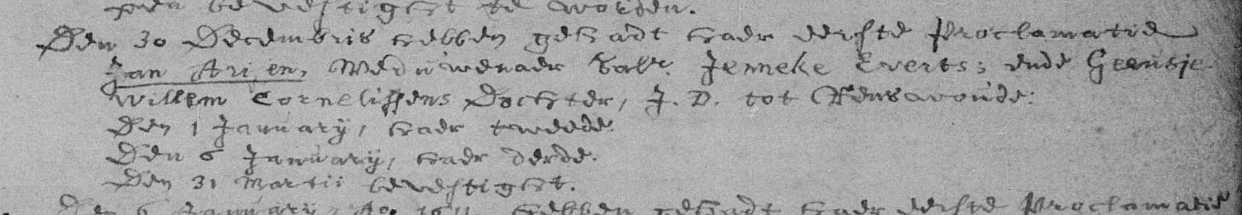 bevestight te worden.
Den 30 Decembris hebben gehadt haer eerste Proclamatie
Jan Arien, Weduwenaer Jenneke Everts; ende Geertje
Willem Cornelissens Dochter, J. D. tot Renswoude:
Den 1 January, haer tweede.
Den 6 January, haer derde.
Den 31 Martii bevestight.
Den 6 January, hebben gehadt haer eerste Proclamatie